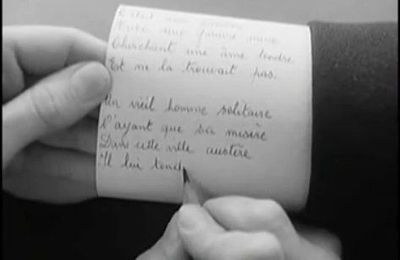 C'était une
Toute une
Cherchant une âme tendre
Et ne la trouvait pas.
Un vieil homme solitaire
N'ayant que sa misère
Dans cette ville austère
Il lui tend